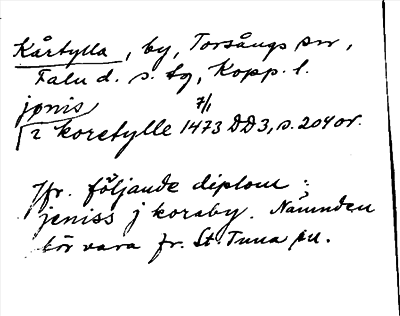 Kårtylla, by, Torsångs sn,
Falu d. s. tg, Kopp. l.
jønis 7/1
i koretylle 1473 DD3, s. 204 or.
Jfr. följande diplom:
jeniss j koraby. Nämnden
bör vara fr. St. Tuna sn.